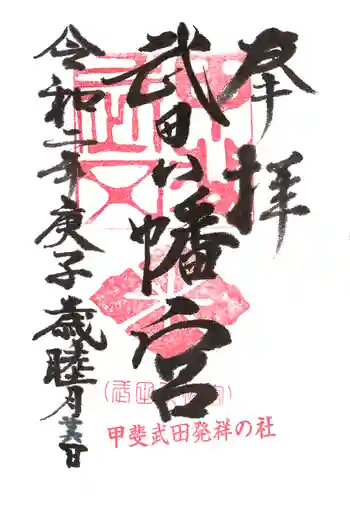 奉拝
武田八幡宮
令和二年庚子歳睦月廿六日
甲斐武田発祥の社